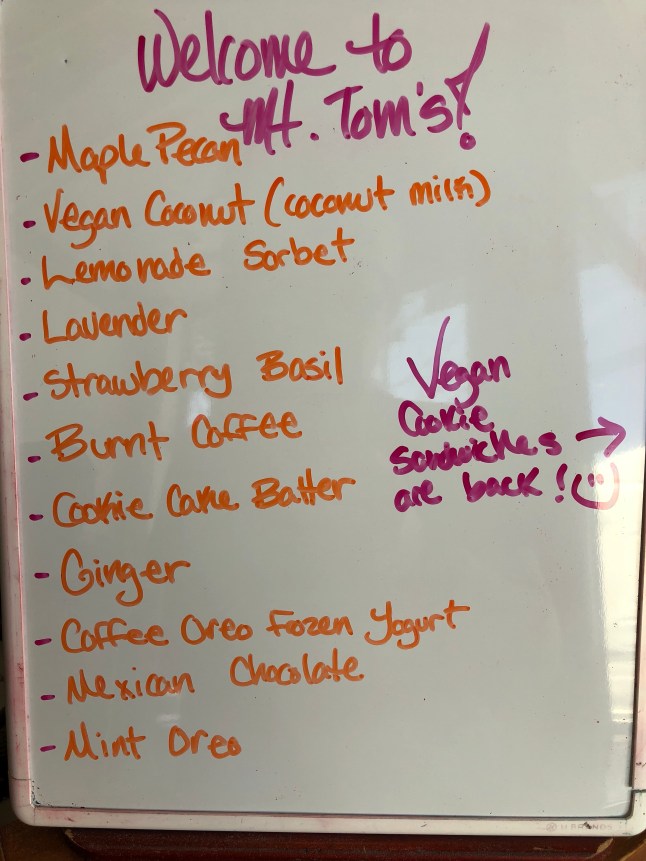 Welcome to
Mt. Tom's!
- Maple Pecan
- Vegan Coconut (coconut milk)
- Lemonade Sorbet
- Lavender
- Strawberry Basil
- Burnt Coffee
- Cookie Cake Batter
- Ginger
- Coffee Oreo Frozen Yogurt
- Mexican Chocolate
- Mint Oreo
Vegan
Cookie
sandwiches →
are back! ☺
U BRANDS